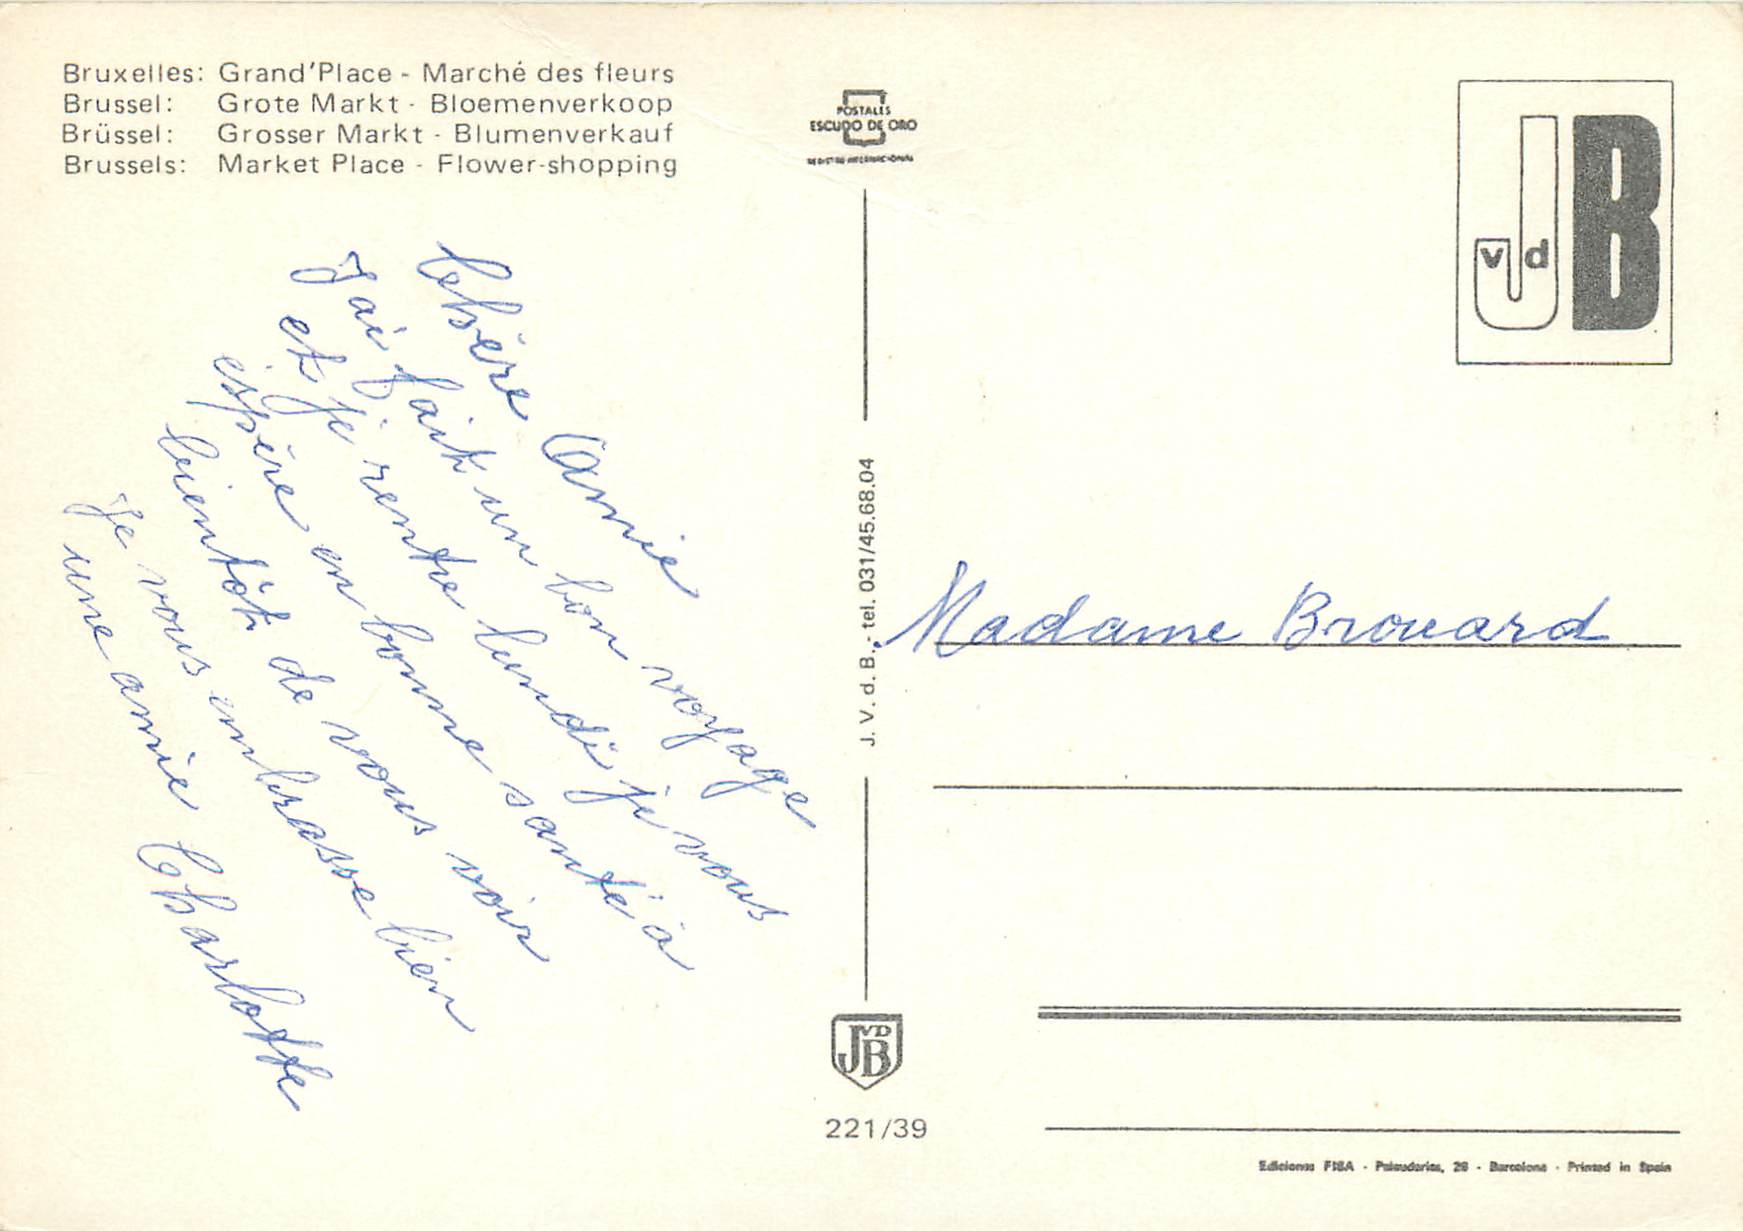 Bruxelles: Grand'Place - Marché des fleurs
Brussel: Grote Markt - Bloemenverkoop
Brüssel: Grosser Markt - Blumenverkauf
Brussels: Market Place - Flower-shopping
Chère Amie
J'ai fait un bon voyage
et je rentre lundi je vous
espère en bonne santé à
bientôt de vous voir
je vous embrasse bien
une amie Charlotte
POSTALES
ESCUDO DE ORO
REGISTRO INTERNACIONAL
J. V. d. B. - tel. 031/45.68.04
J VD B
221/39
J vd B
Madame Brouard
Ediciones FISA - Palaudarias, 26 - Barcelona - Printed in Spain